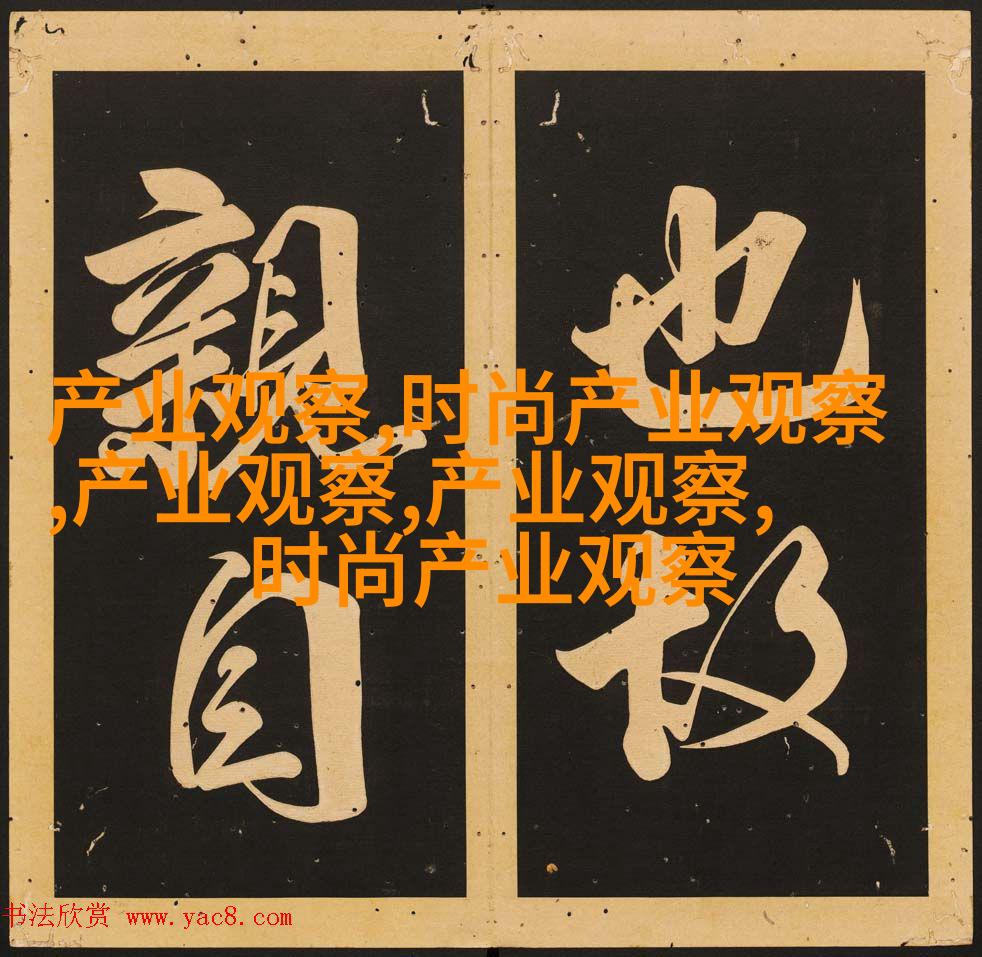 也故
親自
产业观察,时尚产业观察
,产业观察,产业观察,
时尚产业观察
书法欣赏 www.yac8.com